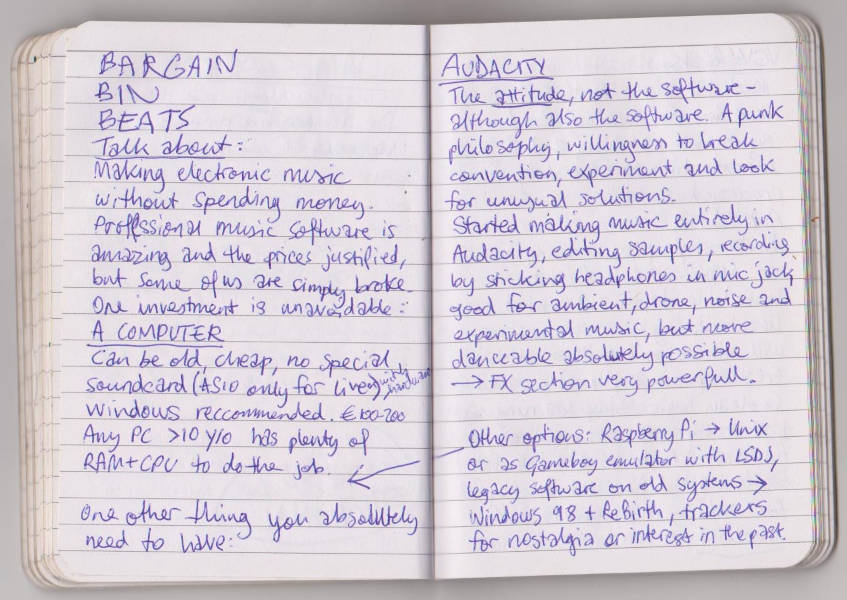 BARGAIN
BIN
BEATS
Talk about:
Making electronic music
without spending money.
Proffesional music software is
amazing and the prices justified,
but some of us are simply broke.
One investment is unavoidable:
A COMPUTER
Can be old, cheap, no special
soundcard (ASIO only for live) with hardware
Windows reccommended. €100-200
Any PC >10 y/o has plenty of
RAM+CPU to do the job.
One other thing you absolutely
need to have:
AUDACITY
The attitude, not the software -
although also the software. A punk
philosophy, willingness to break
convention, experiment and look
for unusual solutions.
Started making music entirely in
Audacity, editing samples, recording
by sticking headphones in mic jack;
good for ambient, drone, noise and
experimental music, but more
danceable absolutely possible
→ FX section very powerfull.
Other options: Raspberry Pi → Unix
or as Gameboy emulator with LSDJ,
legacy software on old systems →
Windows 98 + ReBirth, trackers
for nostalgia or interest in the past.